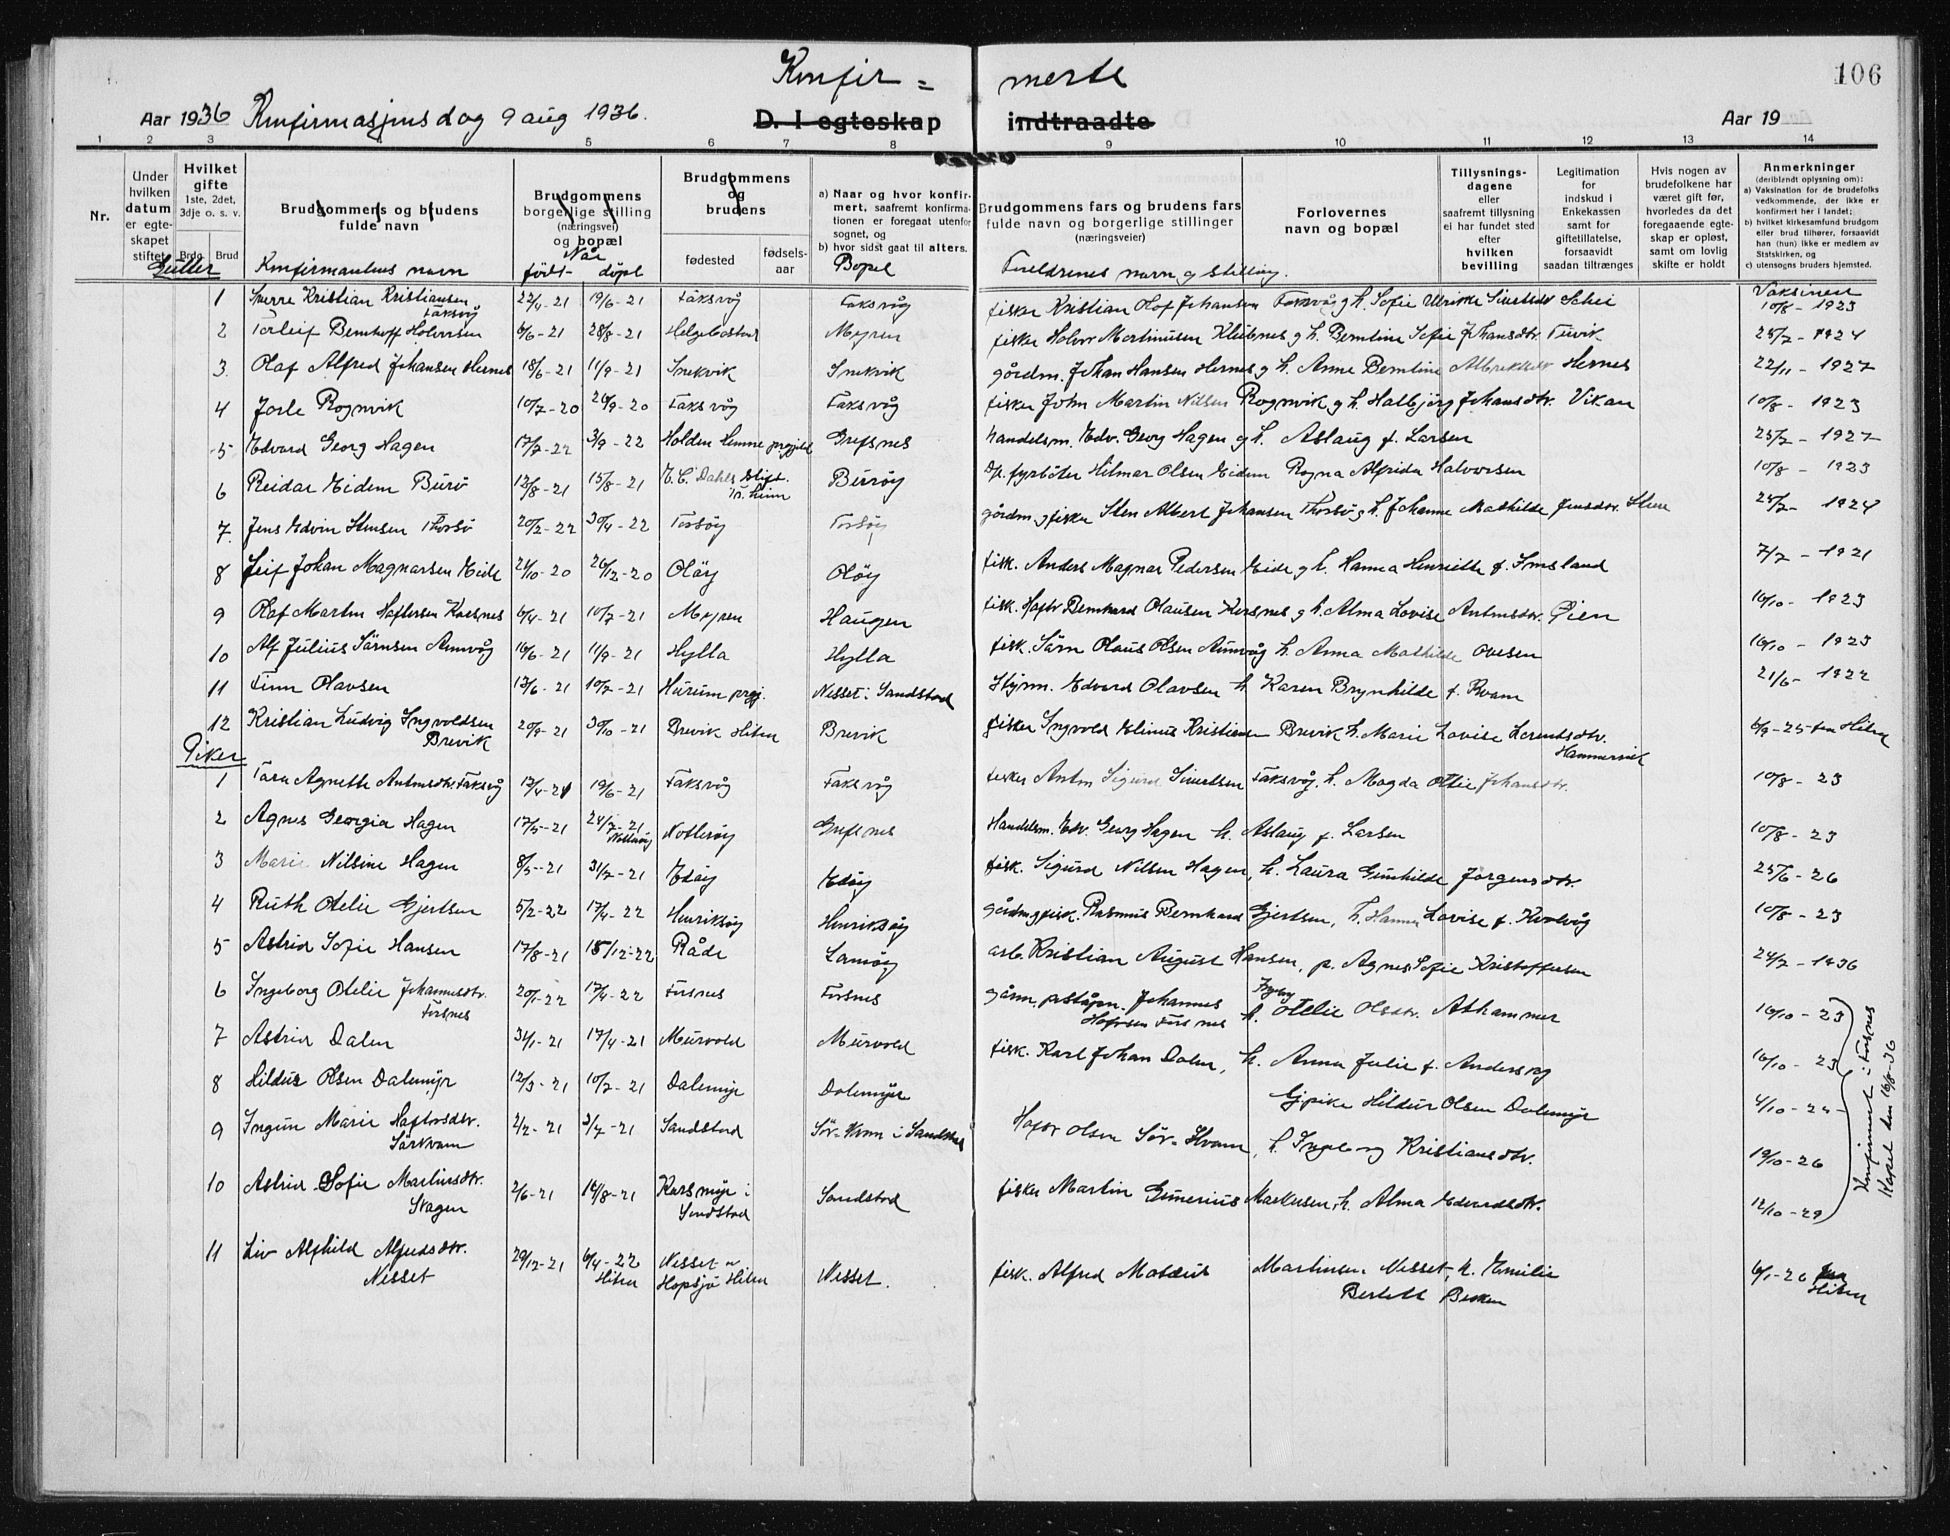 Konfir = merte
106
Aar 1936 Konfirmasjonsdag 9 aug 1936.
D. I egteskap indtraadte
Aar 19
1 2 3 4 5 6 7 8 9 10 11 12 13 14
Nr.
Under hvilken datum er egteskapet stiftet
Hvilket gifte 1ste, 2det, 3dje o. s. v.
Brdg Brud
Brudgommens og brudens fulde navn
Brudgommens borgerlige stilling (næringsvei) og bopæl
Brudgommens og brudens
fødested
fødselsaar
a) Naar og hvor konfirmert, saafremt konfirmationen er foregaat utenfor sognet, og
b) hvor sidst gaat til alters.
Brudgommens fars og brudens fars fulde navn og borgerlige stillinger (næringsveier)
Forlovernes navn og bopæl
Tillysningsdagene eller saafremt tillysning ei har fundet sted efter hvilken bevilling
Legitimation for indskud i Enkekassen samt for giftetillatelse, forsaavidt saadan tiltrænges
Hvis nogen av brudefolkene har været gift før, hvorledes da det foregaaende egteskap er opløst, samt om lovlig skifte er holdt
Anmerkninger (deriblandt oplysning om):
a) Vaksination for de brudefolks vedkommende, der ikke er konfirmert her i landet;
b) hvilket kirkesamfund brudgom eller brud tilhører, forsaavidt han (hun) ikke er medlem av Statskirken, og
c) utensogns bruders hjemsted.
Gutter Konfirmantens navn Når født- døpt Bopel Foreldrenes navn og stilling. Vaksinert
1 Sverre Kristian Kristiansen Faksvåg 22/4-21 19/6-21 Faksvåg Faksvåg fisker Kristian Olaf Johansen Faksvåg h. Sofie Ulrikke Sivertsdtr 10/8-1923
2 Torleif Bernhoff Halvorsen 6/6-21 28/8-21 Helgebostad Myren fisker Halvor Martinusen Klubnes g h. Berntine Sofie Johansdtr. 25/7-1924
3. Olaf Alfred Johansen Hernes 18/6-21 11/9-21 Snekvik Snekvik gårdm. Johan Hansen Hernes g h. Anne Berntine Albrektsdtr Hernes 22/11-1927
4 Jarle Rognvik 10/7-20 26/9-20 Faksvåg Faksvåg fisker John Martin Nilsen Rognvik g h. Halbjörg Johansdtr. Vikan 10/8-1923
5 Edvard Georg Hagen 17/7-22 3/9-22 Holden Hemne prgjeld Grefsnes handelsm. Edv. Georg Hagen g h. Aslaug f. Larsen 25/7-1927
6 Reidar Eidem Burø 12/8-21 15/8-21 E. C. Dahls Stift. Tr.heim Burøy fyrbøter Hilmar Olsen Eidem Ragna Alfrida Halvorsen 10/8-1923
7. Jens Edvin Stensen Thorsø 20/2-22 30/4-22 Torsøy Torsøy gårdm. g fisker Sten Albert Johansen Thorsø g h. Johanne Mathilde Jensdtr. 25/7-1924
8 Leif Johan Magnarsen Eide 24/10-20 26/12-20 Oløy Oløy fisk. Anders Magnar Pedersen Eide g h. Hanna Henriette f. Imsland 7/7-1921
9 Olaf Martin Haftorsen Korsnes 6/4-21 10/7-21 Myren Haugen fisk. Haftor Bernhard Olausen Korsnes g h. Alma Lovise Antonsdtr. Øien 16/10-1923
10 Alf Julius Sörnsen Aunvåg 16/6-21 11/9-21 Hylla Hylla fisk. Sörn Olaus Olsen Aunvåg h. Anna Mathilde Ovesen 16/10-1923
11 Finn Olavsen 13/6-21 10/7-21 Hurum prgj. Nesset i Sandstad Styrm. Edvard Olavsen h. Karen Brynhilde f. Kvam 21/6-1922
12 Kristian Ludvig Ingvoldsen Brevik 20/9-21 30/10-21 Brevik Hitra Brevik fisker Ingvold Elinus Kristiansen Brevik h. Marie Lovise Lorentsdtr. Hammervik 6/9-25
Piker
1 Tora Agnethe Antonsdtr. Faksvåg 13/4-21 19/6-21 Faksvåg Faksvåg fisker Anton Sigurd Sivertsen Faksvåg, h. Magda Ottie Johansdtr. 10/8-23
2 Agnes Georgia Hagen 17/5-21 24/7-21 Nottøy Grefsnes Handelsm. Edv. Georg Hagen h. Aslaug f. Larsen 10/8-23
3 Marie Nilsine Hagen 8/5-21 31/7-21 Edøy Edøy fisk. Sigurd Nilsen Hagen, h. Laura Gunhilde Jørgensdtr. 25/6-26
4 Ruth Otelie Gjertsen 5/2-22 17/4-22 Henriksøy Henriksøy gårdm. g fisk. Rasmus Bernhard Gjertsen, h. Hanna Lovise f. Kvalvåg 10/8-23
5 Astrid Sofie Hansen 17/8-21 18/12-22 Råde Lamøy arb. Kristian August Hansen, p. Agnes Sofie Kristoffersen 24/7-1936
6 Ingeborg Otelie Johannesdtr. Forsnes 20/1-22 17/4-22 Forsnes Forsnes Johannes Hafrosen Forsnes h. Otelie Olsdtr. Ashammer 16/10-23
7 Astrid Dalen 31/1-21 17/4-21 Murvold Murvold fisk. Karl Johan Dalen, h. Anna Julie f. Andersvåg 16/10-23
8 Hildur Olsen Dalemyr 12/3-21 10/7-21 Dalemyr Dalemyr Gjpike Hildur Olsen Dalemyr 4/10-24
9 Ingun Marie Haftorsdtr. Sörkvam 2/2-21 3/4-21 Sandstad Sör-Kvam i Sandstad Haftor Olsen Sör-Kvam, h. Ingeborg Kristiansdtr. 19/10-26
10 Astrid Sofie Martinsdtr. Skagen 2/6-21 14/8-21 Korsmyr i Sandstad Sandstad fisker Martin Gunerius Markusen, h. Alma Edvardsdtr. 12/10-29
Konfirmert i Forsnes Kapel den 16/8-36
11 Liv Alfhild Alfredsdtr. Nesset 29/12-21 6/4-22 Hitra Nesset Hopsjø Hitra Nesset. fisk. Alfred Mateus Martinsen Nesset, h. Emilie 6/1-26 Hitra